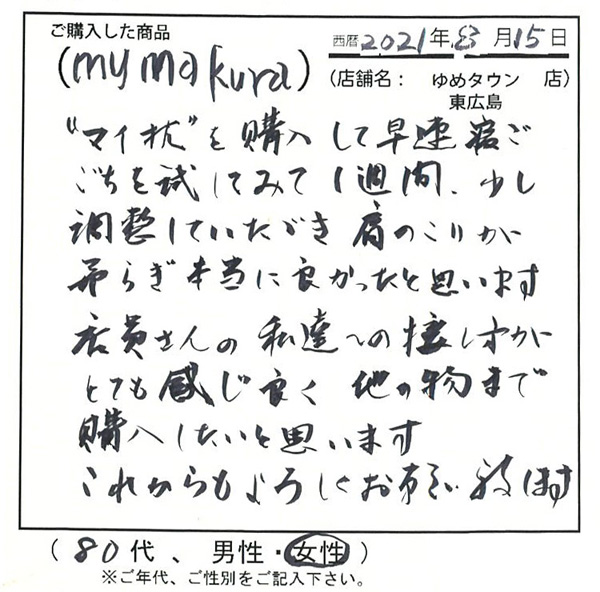 ご購入した商品
西暦2021年8月15日
(my makura)
(店舗名： ゆめタウン 店)
東広島
"マイ枕"を購入して早速寝ご
ごちを試してみて1週間、少し
調整していただき肩のこりが
和らぎ本当に良かったと思います
店員さんの私達への接し方が
とても感じ良く他の物まで
購入したいと思います
これからもよろしくお願い致します
(80代、男性・女性)
※ご年代、ご性別をご記入下さい。